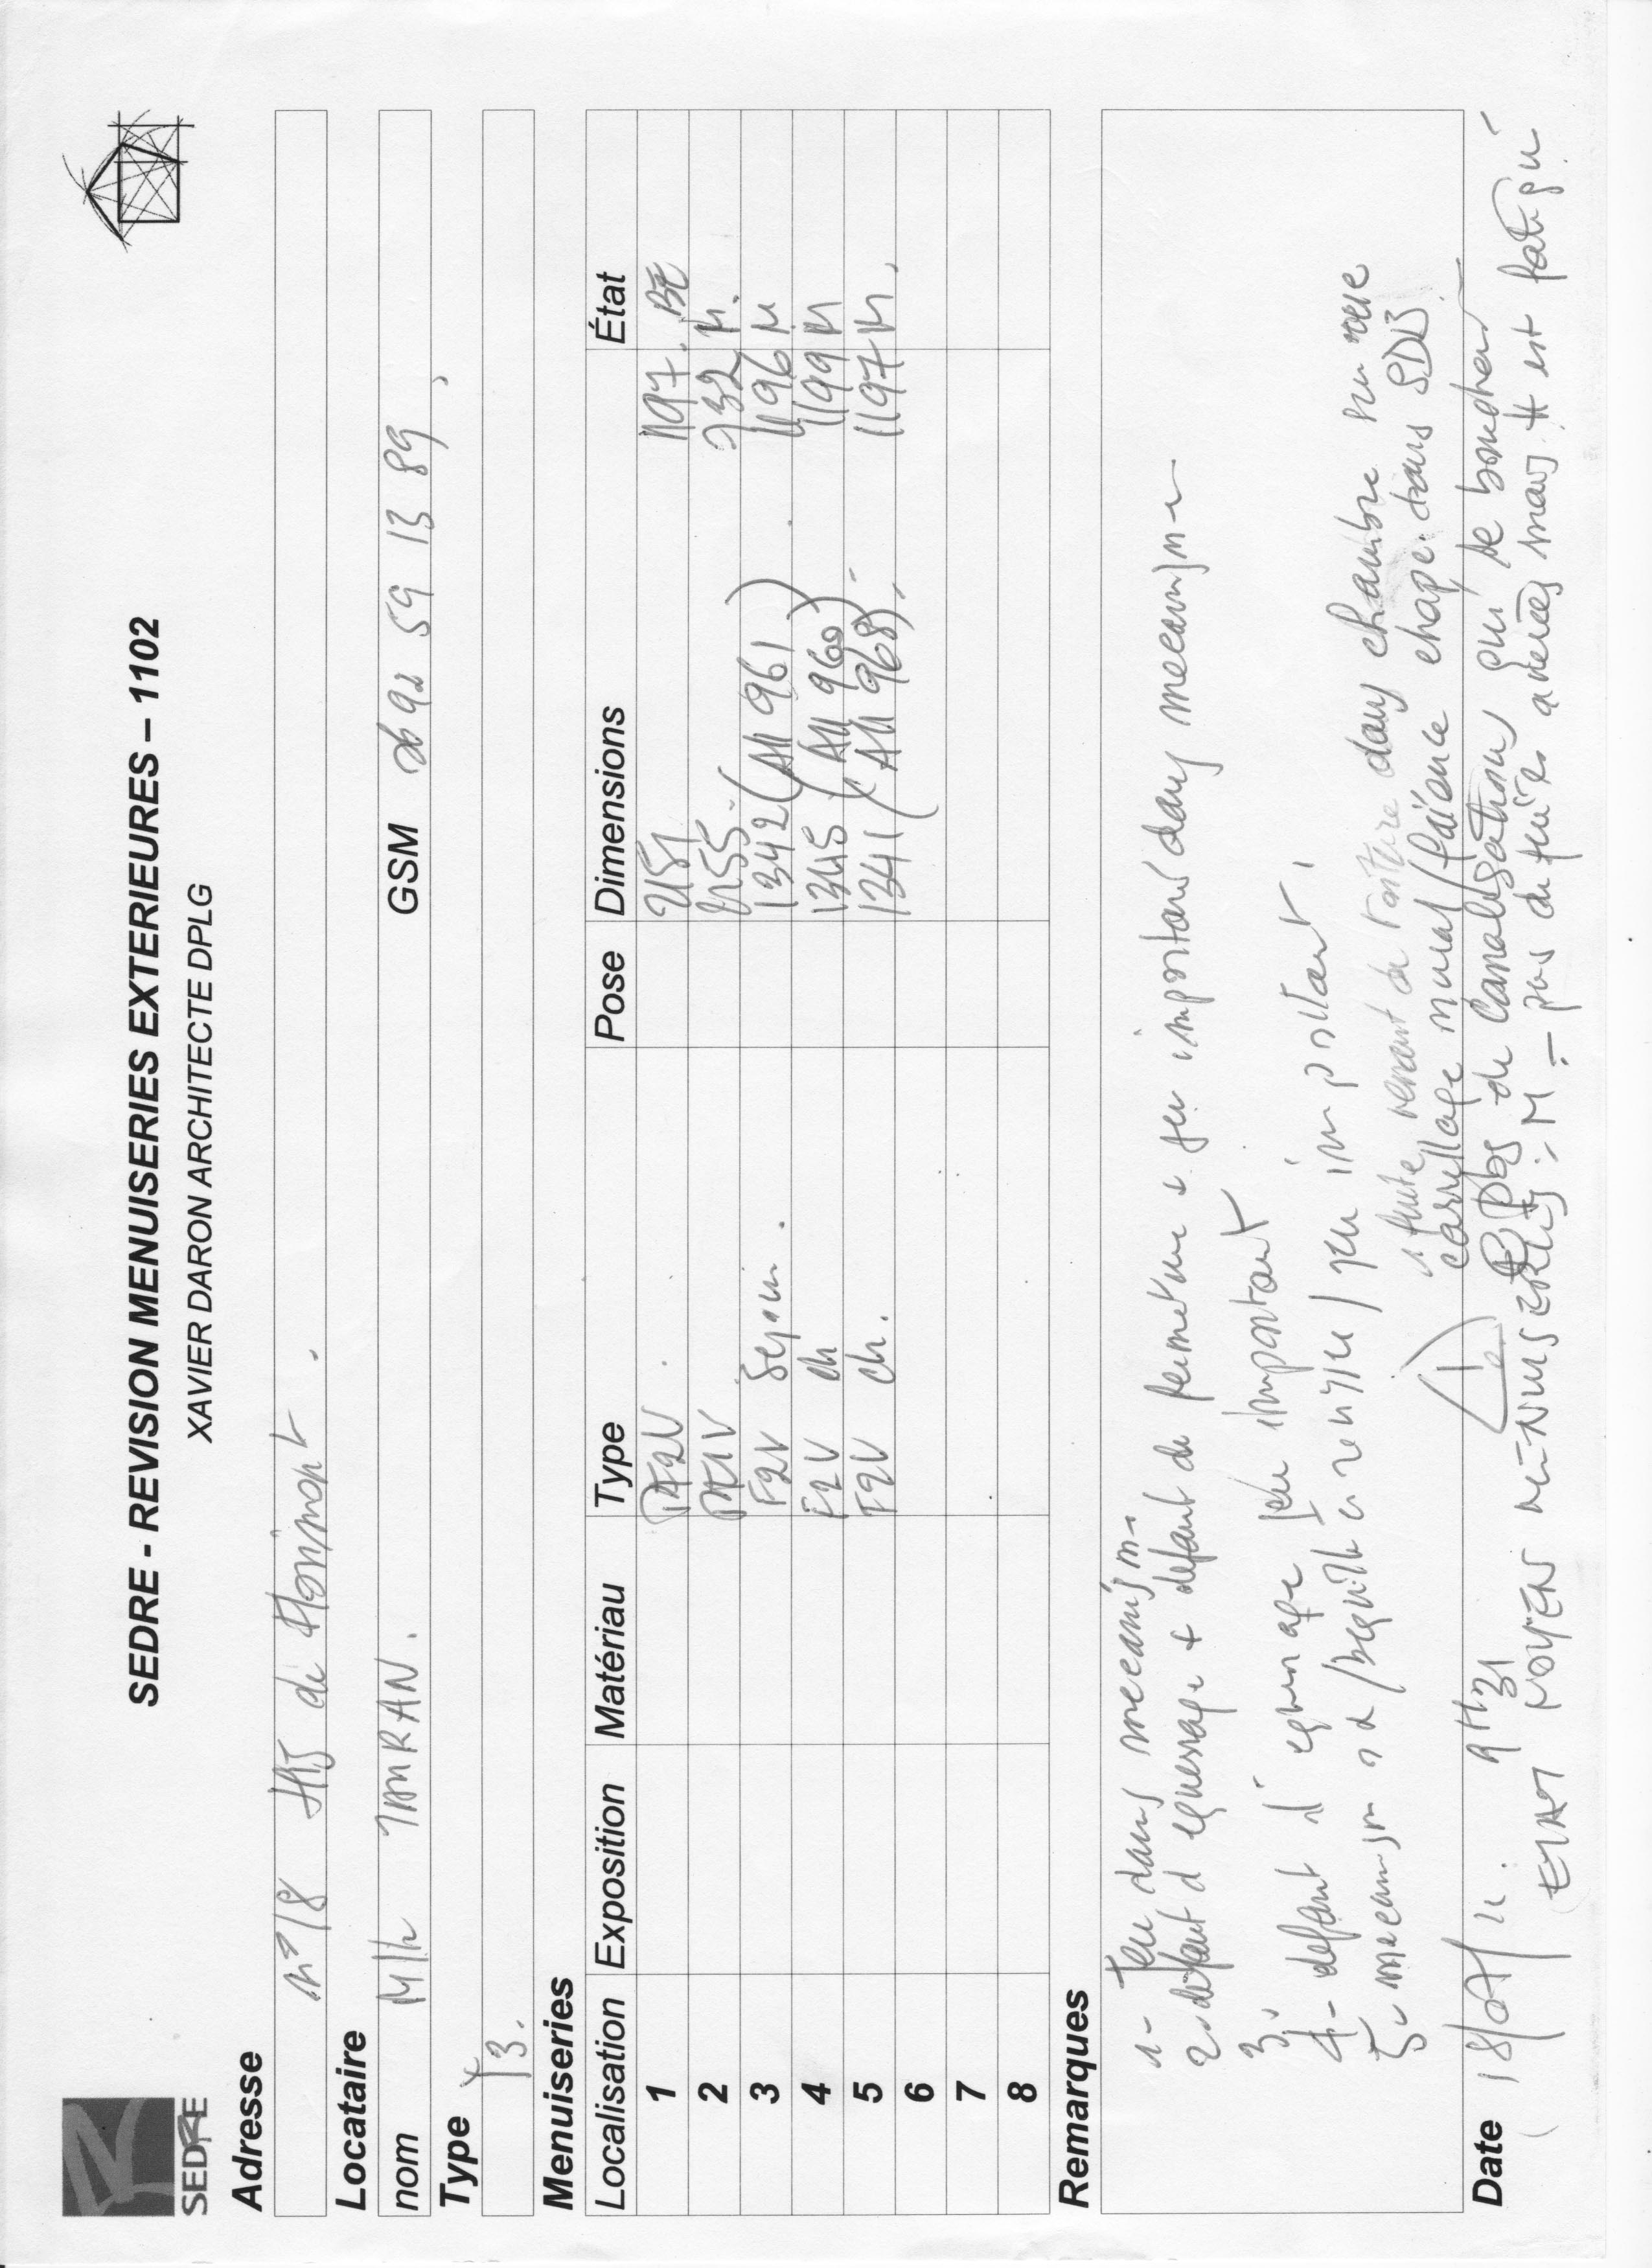 SEDRE - REVISION MENUISERIES EXTERIEURES – 1102
XAVIER DARON ARCHITECTE DPLG
SEDRE
Adresse
n° 18 de
Locataire
nom Mlle IMRAN. GSM 92 59 13 89
Type
T3.
Menuiseries
Localisation Exposition Matériau Type Pose Dimensions État
1 PF2V 2151 1197. BE
2 PF1V 2155 732 M.
3 F2V Sejour. 1342 (All 961) 1196 M
4 F2V ch 1345 (All 960) 1199 M
5 F2V ch. 1341 (All 968) 1197 M.
6
7
8
Remarques
1- Jeu dans mecanism-
2- défaut d'equerrage + defaut de fermeture + jeu important dans mecanism-
3-
4- deffaut d'equerrage jeu important
5- mecanism béquille jeu important.
fuite venant de toiture dans chambre sur rue
carrellage mural faïence chape dans SDB
Pbs de canalisations qui se bouchent
Date 18/07/11. 9H31
ETAT MOYEN MENUISERIES: M = pas de fuites averées mais est fatigué